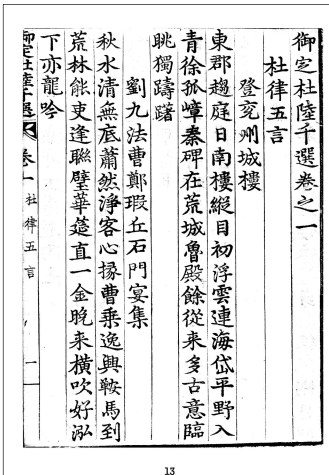 御定杜陸千選卷之一
杜律五言
登兗州城樓
東郡趨庭日南樓縱目初浮雲連海岱平野入
青徐孤嶂秦碑在荒城魯殿餘從来多古意臨
眺獨躊躇
劉九法曹鄭瑕丘石門宴集
秋水清無底蕭然淨客心掾曹乗逸興鞍馬到
荒林能吏逢聯璧華筵直一金晚来横吹好泓
下亦龍吟
御定杜陸千選 卷一 杜律五言 一
13